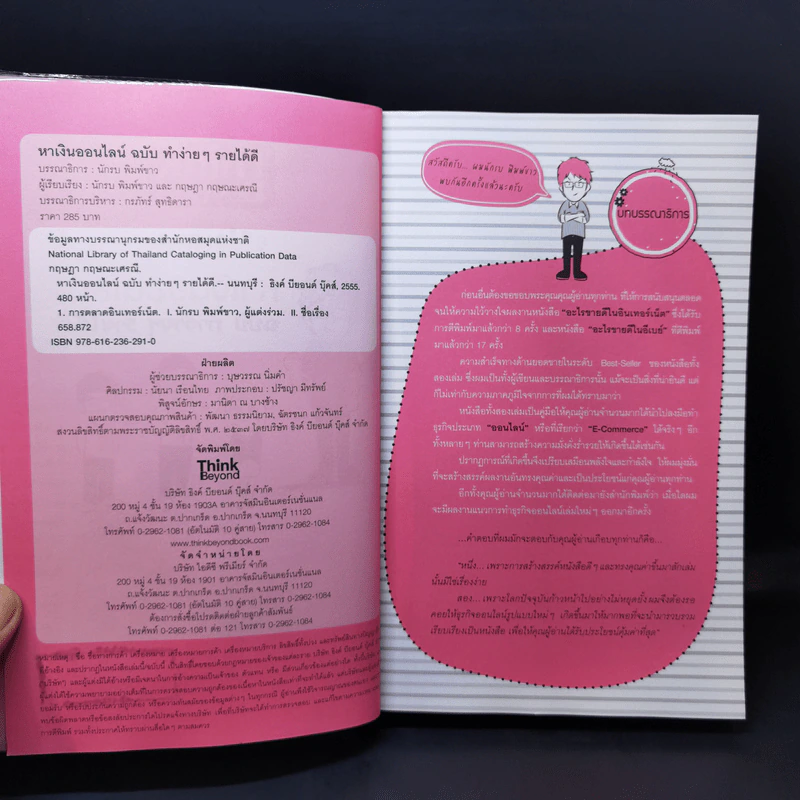 หาเงินออนไลน์ ฉบับ ทำง่ายๆ รายได้ดี
บรรณาธิการ : นักรบ พิมพ์ขาว
ผู้เรียบเรียง : นักรบ พิมพ์ขาว และ กฤษฎา กฤษณะเศรณี
บรรณาธิการบริหาร : กรภัทร์ สุทธิดารา
ราคา 285 บาท
ข้อมูลทางบรรณานุกรมของสำนักหอสมุดแห่งชาติ
National Library of Thailand Cataloging in Publication Data
กฤษฎา กฤษณะเศรณี.
หาเงินออนไลน์ ฉบับ ทำง่ายๆ รายได้ดี.-- นนทบุรี : ธิงค์ บียอนด์ บุ๊คส์, 2555.
480 หน้า.
1. การตลาดอินเทอร์เน็ต. I. นักรบ พิมพ์ขาว, ผู้แต่งร่วม. II. ชื่อเรื่อง
658.872
ISBN 978-616-236-291-0
ฝ่ายผลิต
ผู้ช่วยบรรณาธิการ : บุษวรรณ นิ่มคำ
ศิลปกรรม : นัยนา เรือนไทย ภาพประกอบ : ปรัชญา มีทรัพย์
พิสูจน์อักษร : มานิดา ณ บางช้าง
แผนกตรวจสอบคุณภาพสินค้า : พัฒนา ธรรมนิยาม, ฉัตรชนก แก้วจันทร์
สงวนลิขสิทธิ์ตามพระราชบัญญัติลิขสิทธิ์ พ.ศ. ๒๕๓๗ โดยบริษัท ธิงค์ บียอนด์ บุ๊คส์ จำกัด
จัดพิมพ์โดย
Think
Beyond
บริษัท ธิงค์ บียอนด์ บุ๊คส์ จำกัด
200 หมู่ 4 ชั้น 19 ห้อง 1903A อาคารจัสมินอินเตอร์เนชั่นแนล
ถ.แจ้งวัฒนะ ต.ปากเกร็ด อ.ปากเกร็ด จ.นนทบุรี 11120
โทรศัพท์ 0-2962-1081 (อัตโนมัติ 10 คู่สาย) โทรสาร 0-2962-1084
www.thinkbeyondbook.com
จัดจำหน่ายโดย
บริษัท ไอดีซี พรีเมียร์ จำกัด
200 หมู่ 4 ชั้น 19 ห้อง 1901 อาคารจัสมินอินเตอร์เนชั่นแนล
ถ.แจ้งวัฒนะ ต.ปากเกร็ด อ.ปากเกร็ด จ.นนทบุรี 11120
โทรศัพท์ 0-2962-1081 (อัตโนมัติ 10 คู่สาย) โทรสาร 0-2962-1084
ต้องการสั่งซื้อโปรดติดต่อฝ่ายลูกค้าสัมพันธ์
โทรศัพท์ 0-2962-1081 ต่อ 121 โทรสาร 0-2962-1084
สวัสดีครับ... ผมนักรบ พิมพ์ขาว
พบกันอีกครั้งแล้วนะครับ
บทบรรณาธิการ
ก่อนอื่นต้องขอขอบพระคุณคุณผู้อ่านทุกท่าน ที่ให้การสนับสนุนตลอด
จนให้ความไว้วางใจผลงานหนังสือ "อะไรขายดีในอินเทอร์เน็ต" ซึ่งได้รับ
การตีพิมพ์มาแล้วกว่า 8 ครั้ง และหนังสือ "อะไรขายดีในอีเบย์" ที่ตีพิมพ์
มาแล้วกว่า 17 ครั้ง
ความสำเร็จทางด้านยอดขายในระดับ Best-Seller ของหนังสือทั้ง
สองเล่ม ซึ่งผมเป็นทั้งผู้เขียนและบรรณาธิการนั้น แม้จะเป็นสิ่งที่น่ายินดี แต่
ก็ไม่เท่ากับความภาคภูมิใจจากการที่ผมได้ทราบมาว่า
หนังสือทั้งสองเล่มเป็นคู่มือให้คุณผู้อ่านจำนวนมากได้นำไปลงมือทำ
ธุรกิจประเภท "ออนไลน์" หรือที่เรียกว่า "E-Commerce" ได้จริงๆ อีก
ทั้งหลายๆ ท่านสามารถสร้างความมั่งคั่งร่ำรวยให้เกิดขึ้นได้เช่นกัน
ปรากฏการณ์ที่เกิดขึ้นจึงเปรียบเสมือนพลังใจและกำลังใจ ให้ผมมุ่งมั่น
ที่จะสร้างสรรค์ผลงานอันทรงคุณค่าและเป็นประโยชน์แก่คุณผู้อ่านทุกท่าน
อีกทั้งคุณผู้อ่านจำนวนมากได้ติดต่อมายังสำนักพิมพ์ว่า เมื่อใดผม
จะมีผลงานแนวการทำธุรกิจออนไลน์เล่มใหม่ๆ ออกมาอีกครั้ง
...คำตอบที่ผมมักจะตอบกับคุณผู้อ่านเกือบทุกท่านก็คือ...
"หนึ่ง... เพราะการสร้างสรรค์หนังสือดีๆ และทรงคุณค่าขึ้นมาสักเล่ม
นั้นมิใช่เรื่องง่าย
สอง... เพราะโลกปัจจุบันก้าวหน้าไปอย่างไม่หยุดยั้ง ผมจึงต้องรอ
คอยให้ธุรกิจออนไลน์รูปแบบใหม่ๆ เกิดขึ้นมาให้มากพอที่จะนำมารวบรวม
เรียบเรียงเป็นหนังสือ เพื่อให้คุณผู้อ่านได้รับประโยชน์คุ้มค่าที่สุด"